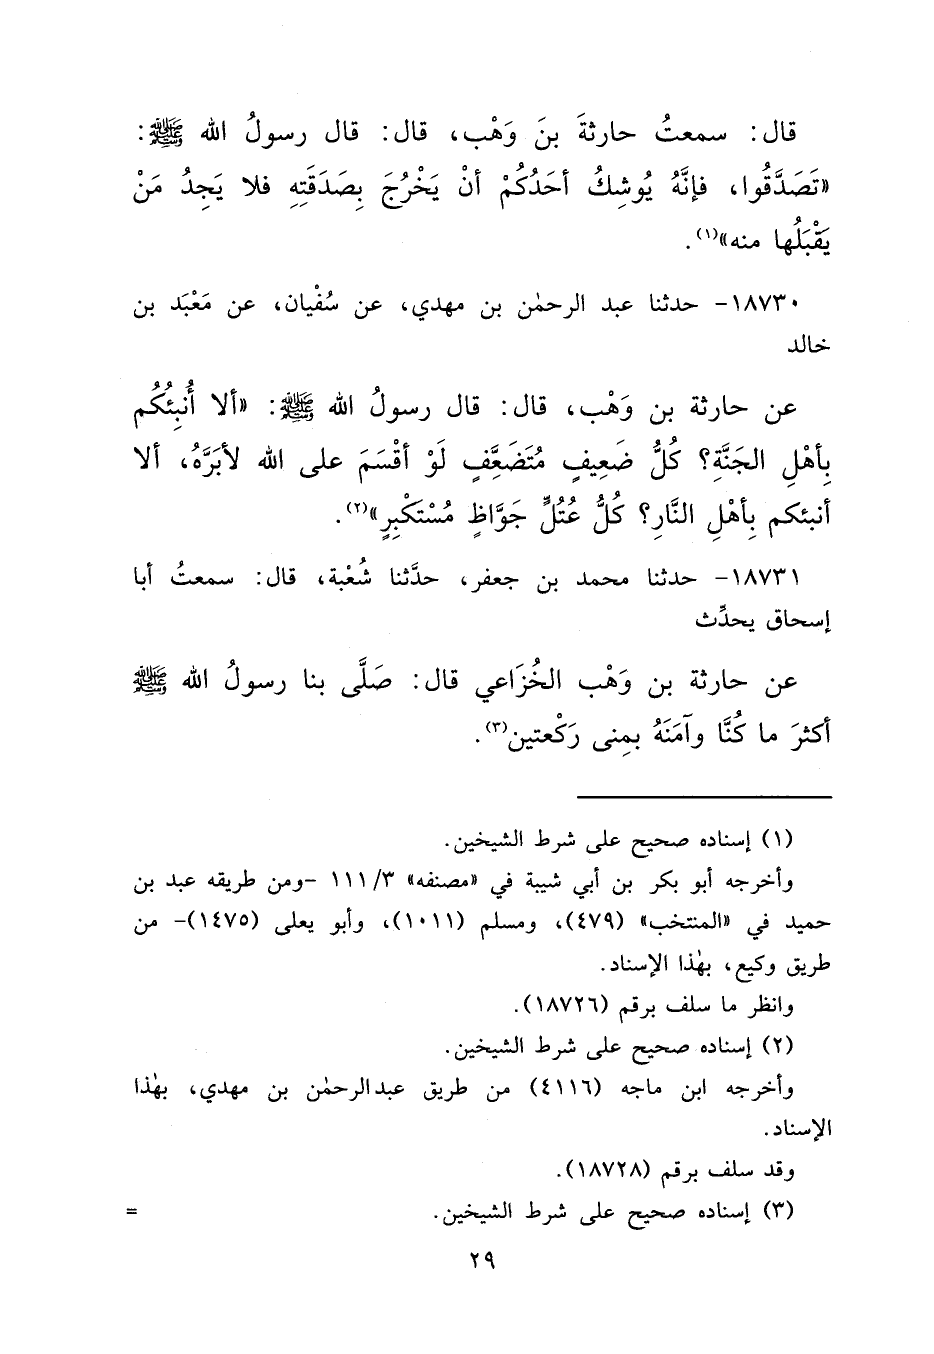 قال: سمعتُ حارثةَ بنَ وَهْب، قال: قال رسولُ الله ﷺ:
«تَصَدَّقُوا، فإنَّهُ يُوشِكُ أحَدُكُمْ أنْ يَخْرُجَ بِصَدَقَتِهِ فلا يَجِدُ مَنْ
يَقْبَلُها منه»(١).
١٨٧٣٠- حدثنا عبد الرحمٰن بن مهدي، عن سُفْيان، عن مَعْبَد بن
خالد
عن حارثة بن وَهْب، قال: قال رسولُ الله ﷺ: «ألا أُنبِئُكُم
بِأهْلِ الجَنَّةِ؟ كُلُّ ضَعِيفٍ مُتَضَعَّفٍ لَوْ أقْسَمَ على الله لأبَرَّهُ، ألا
أنبئكم بِأهْلِ النَّارِ؟ كُلُّ عُتُلٍّ جَوَّاظٍ مُسْتَكْبِرٍ»(٢).
١٨٧٣١- حدثنا محمد بن جعفر، حدَّثنا شُعْبة، قال: سمعتُ أبا
إسحاق يحدِّث
عن حارثة بن وَهْب الخُزَاعي قال: صَلَّى بنا رسولُ الله ﷺ
أكثرَ ما كُنَّا وآمَنَهُ بمِنى رَكْعتين(٣).
(١) إسناده صحيح على شرط الشيخين.
وأخرجه أبو بكر بن أبي شيبة في «مصنفه» ١١١/٣ -ومن طريقه عبد بن
حميد في «المنتخب» (٤٧٩)، ومسلم (١٠١١)، وأبو يعلى (١٤٧٥)- من
طريق وكيع، بهٰذا الإسناد.
وانظر ما سلف برقم (١٨٧٢٦).
(٢) إسناده صحيح على شرط الشيخين.
وأخرجه ابن ماجه (٤١١٦) من طريق عبدالرحمٰن بن مهدي، بهٰذا
الإسناد.
وقد سلف برقم (١٨٧٢٨).
(٣) إسناده صحيح على شرط الشيخين. =
٢٩